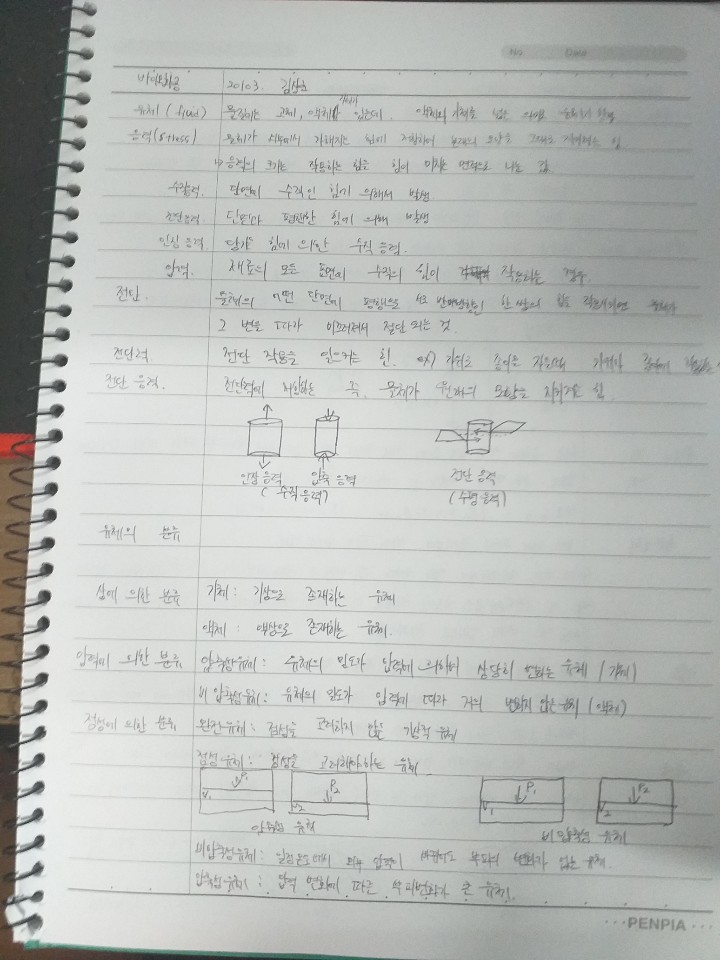 No. Date
20103. 김
유체 (fluid) 물질에는 고체, 액체, 기체가 있는데. 액체와 기체를 합친
응력 (stress) 물체가 외부에서 가해지는 힘에 저항하여 본래의 모양을 그대로 지키려는 힘
↳ 응력의 크기는 작용하는 힘을 힘이 미치는 면적으로 나눈 값
수직응력. 단면에 수직인 힘에 의해서 발생
전단응력 단면과 평행한 힘에 의해 발생
인장 응력 당기는 힘에 의한 수직 응력.
압력. 재료의 모든 표면에 수직의 힘이 작용하는 경우.
전단. 물체의 어떤 단면에 평행으로 서로 반대방향인 한 쌍의 힘을 작용시키면 물체가
그 면을 따라 미끄러져서 절단 되는 것.
전단력 전단 작용을 일으키는 힘. ex) 가위로 종이를 자를때 가위가 종이에
전단 응력. 전단력에 저항하는 즉, 물체가 원래의 모양을 지키려는 힘
인장 응력 압축 응력 전단 응력
(수직 응력) (수평 응력)
유체의 분류
상에 의한 분류 기체 : 기상으로 존재하는 유체
액체 : 액상으로 존재하는 유체.
압력에 의한 분류 압축성유체 : 유체의 밀도가 압력에 의하여 상당히 변화는 유체 (기체)
비압축성유체 : 유체의 밀도가 압력에 따라 거의 변화지 않은 유체 (액체)
점성에 의한 분류 완전유체 : 점성을 고려하지 않은 가상적 유체
점성 유체 : 점성을 고려해야하는 유체.
P1 V1 P2 V2 P1 V1 P2 V2
압축성 유체 비압축성 유체
비압축성유체 : 일정온도에서 외부 압력이 바뀌어도 부피의 변화가 없는 유체.
압축성유체 : 압력 변화에 따른 부피변화가 큰 유체.
PENPIA